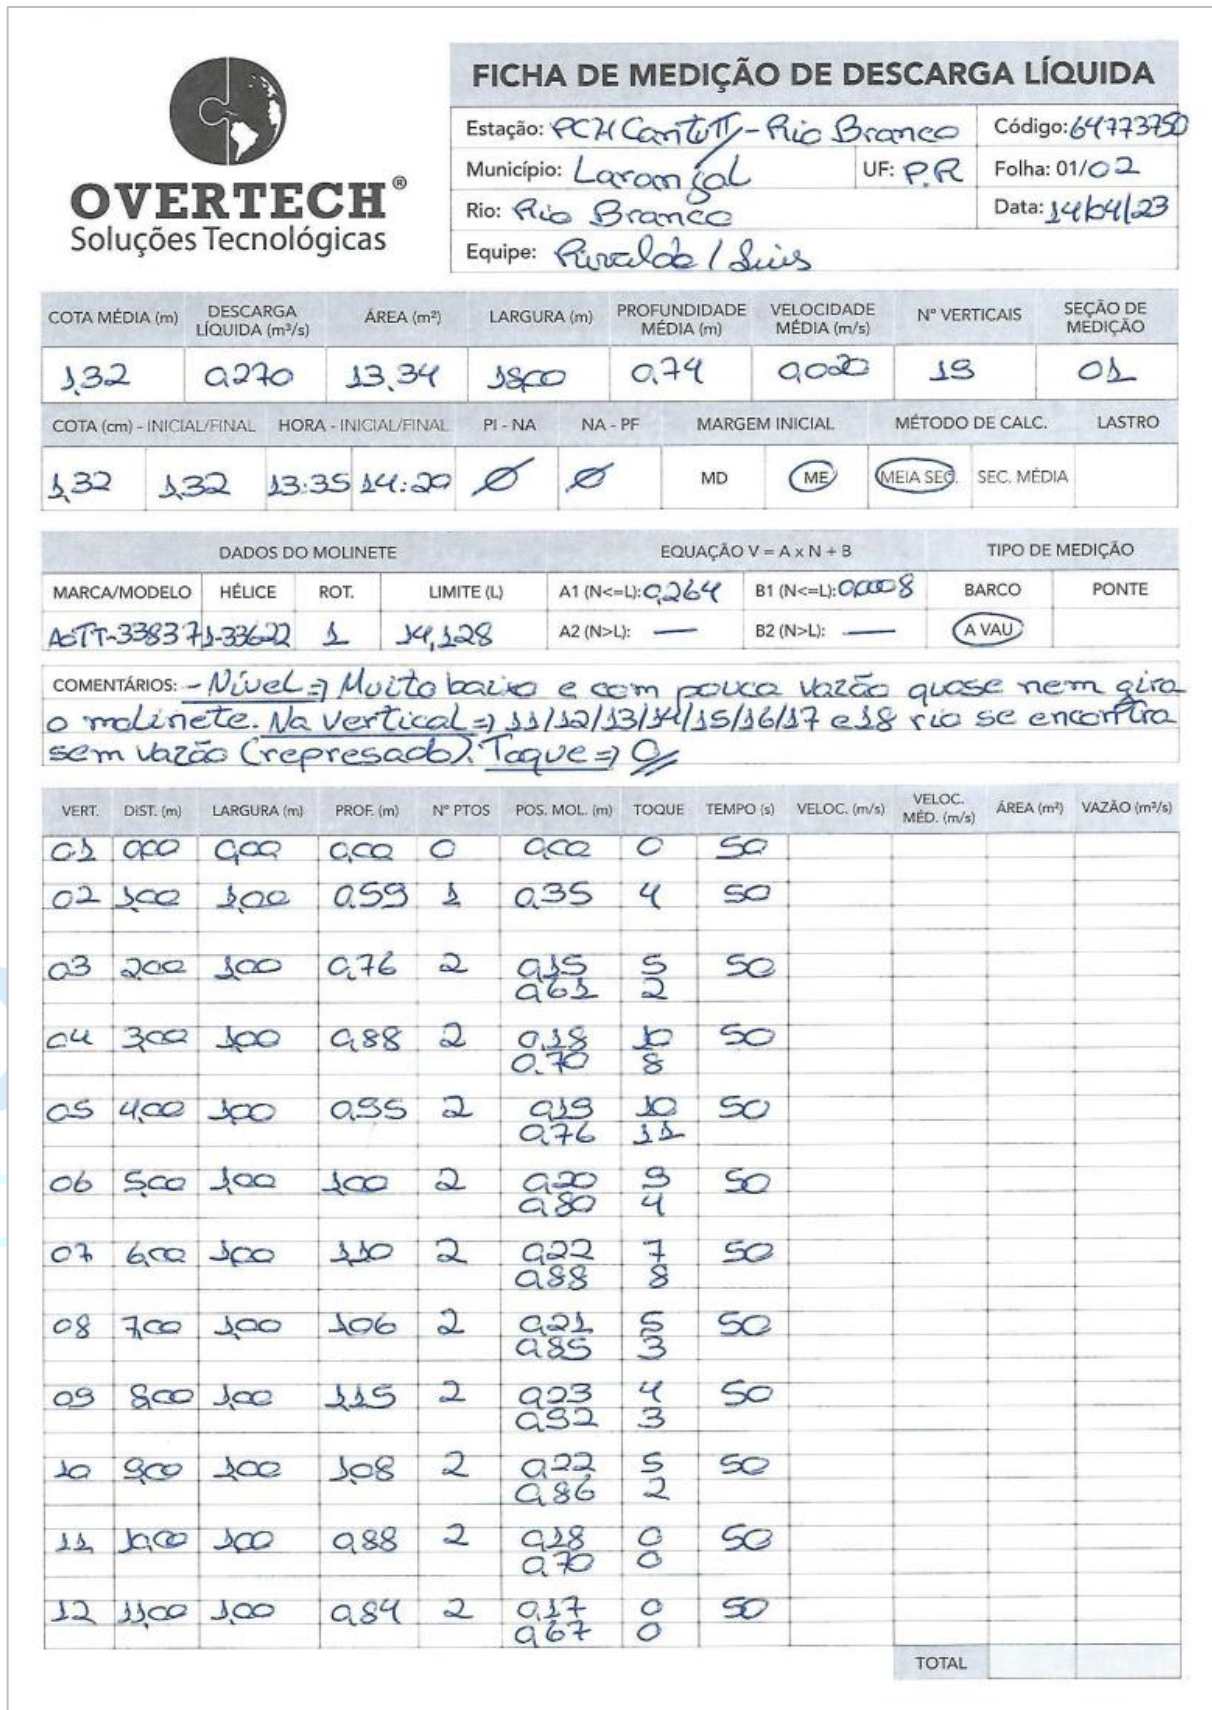 OVERTECH®
Soluções Tecnológicas
FICHA DE MEDIÇÃO DE DESCARGA LÍQUIDA
Estação: PCH Cantu II - Rio Branco Código: 64773750
Município: Laranjal UF: P.R Folha: 01/02
Rio: Rio Branco Data: 14/04/23
Equipe: Rivaldo / Luis
COTA MÉDIA (m) DESCARGA LÍQUIDA (m³/s) ÁREA (m²) LARGURA (m) PROFUNDIDADE MÉDIA (m) VELOCIDADE MÉDIA (m/s) Nº VERTICAIS SEÇÃO DE MEDIÇÃO
1,32 0,270 13,34 18,00 0,74 0,020 19 01
COTA (cm) - INICIAL/FINAL HORA - INICIAL/FINAL PI - NA NA - PF MARGEM INICIAL MÉTODO DE CALC. LASTRO
1,32 1,32 13:35 14:20 Ø Ø MD ME MEIA SEÇ. SEC. MÉDIA
DADOS DO MOLINETE EQUAÇÃO V = A x N + B TIPO DE MEDIÇÃO
MARCA/MODELO HÉLICE ROT. LIMITE (L) A1 (N<=L): 0,264 B1 (N<=L): 0,0008 BARCO PONTE
AOTT-33837 1-33622 1 14,128 A2 (N>L): — B2 (N>L): — A VAU
COMENTÁRIOS: - Nível => Muito baixo e com pouca vazão quase nem gira
o molinete. Na vertical => 11/12/13/14/15/16/17 e 18 rio se encontra
sem vazão (represado). Toque => 0
VERT. DIST. (m) LARGURA (m) PROF. (m) Nº PTOS POS. MOL. (m) TOQUE TEMPO (s) VELOC. (m/s) VELOC. MÉD. (m/s) ÁREA (m²) VAZÃO (m³/s)
01 0,00 0,00 0,00 0 0,00 0 50
02 1,00 1,00 0,59 1 0,35 4 50
03 2,00 1,00 0,76 2 0,15 5 50
0,61 2
04 3,00 1,00 0,88 2 0,18 10 50
0.70 8
05 4,00 1,00 0,95 2 0,19 10 50
0,76 11
06 5,00 1,00 1,00 2 0,20 9 50
0,80 4
07 6,00 1,00 1,10 2 0,22 7 50
0,88 8
08 7,00 1,00 1,06 2 0,21 5 50
0,85 3
09 8,00 1,00 1,15 2 0,23 4 50
0,92 3
10 9,00 1,00 1,08 2 0,22 5 50
0,86 2
11 10,00 1,00 0,88 2 0,18 0 50
0,70 0
12 11,00 1,00 0,84 2 0,17 0 50
0,67 0
TOTAL